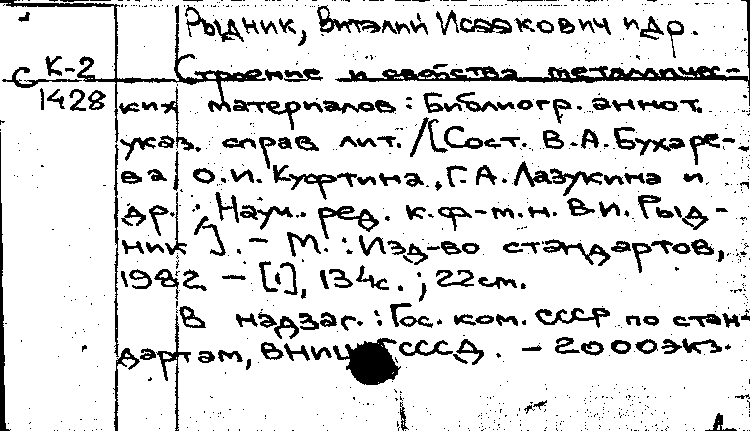 Рыдник, Виталий Исаакович и др.
С К-2
1428
Строение и свойства металличес-
ких материалов : Библиогр. аннот.
указ. справ лит. / [Сост. В.А. Бухаре-
ва, О.И. Куфтина, Г.А. Лазукина и
др. ; Науч. ред. к.ф-м.н. В.И. Рыд-
ник]. - М. : Изд-во стандартов,
1982 - [1], 134с. ; 22см.
В надзаг. : Гос. ком. СССР по стан-
дартам, ВНИЦ ГСССД. - 2000экз.